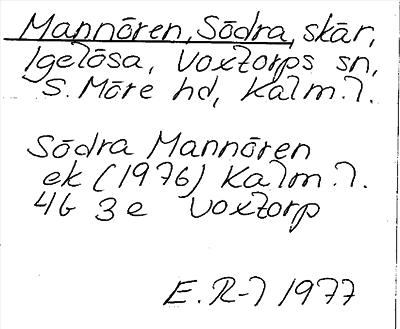 Mannören, Södra, skär,
Igelösa, Voxtorps sn,
S. Möre hd, Kalm. l.
Södra Mannören
ek (1976) Kalm. l.
4G 3e Voxtorp
E. R-l 1977